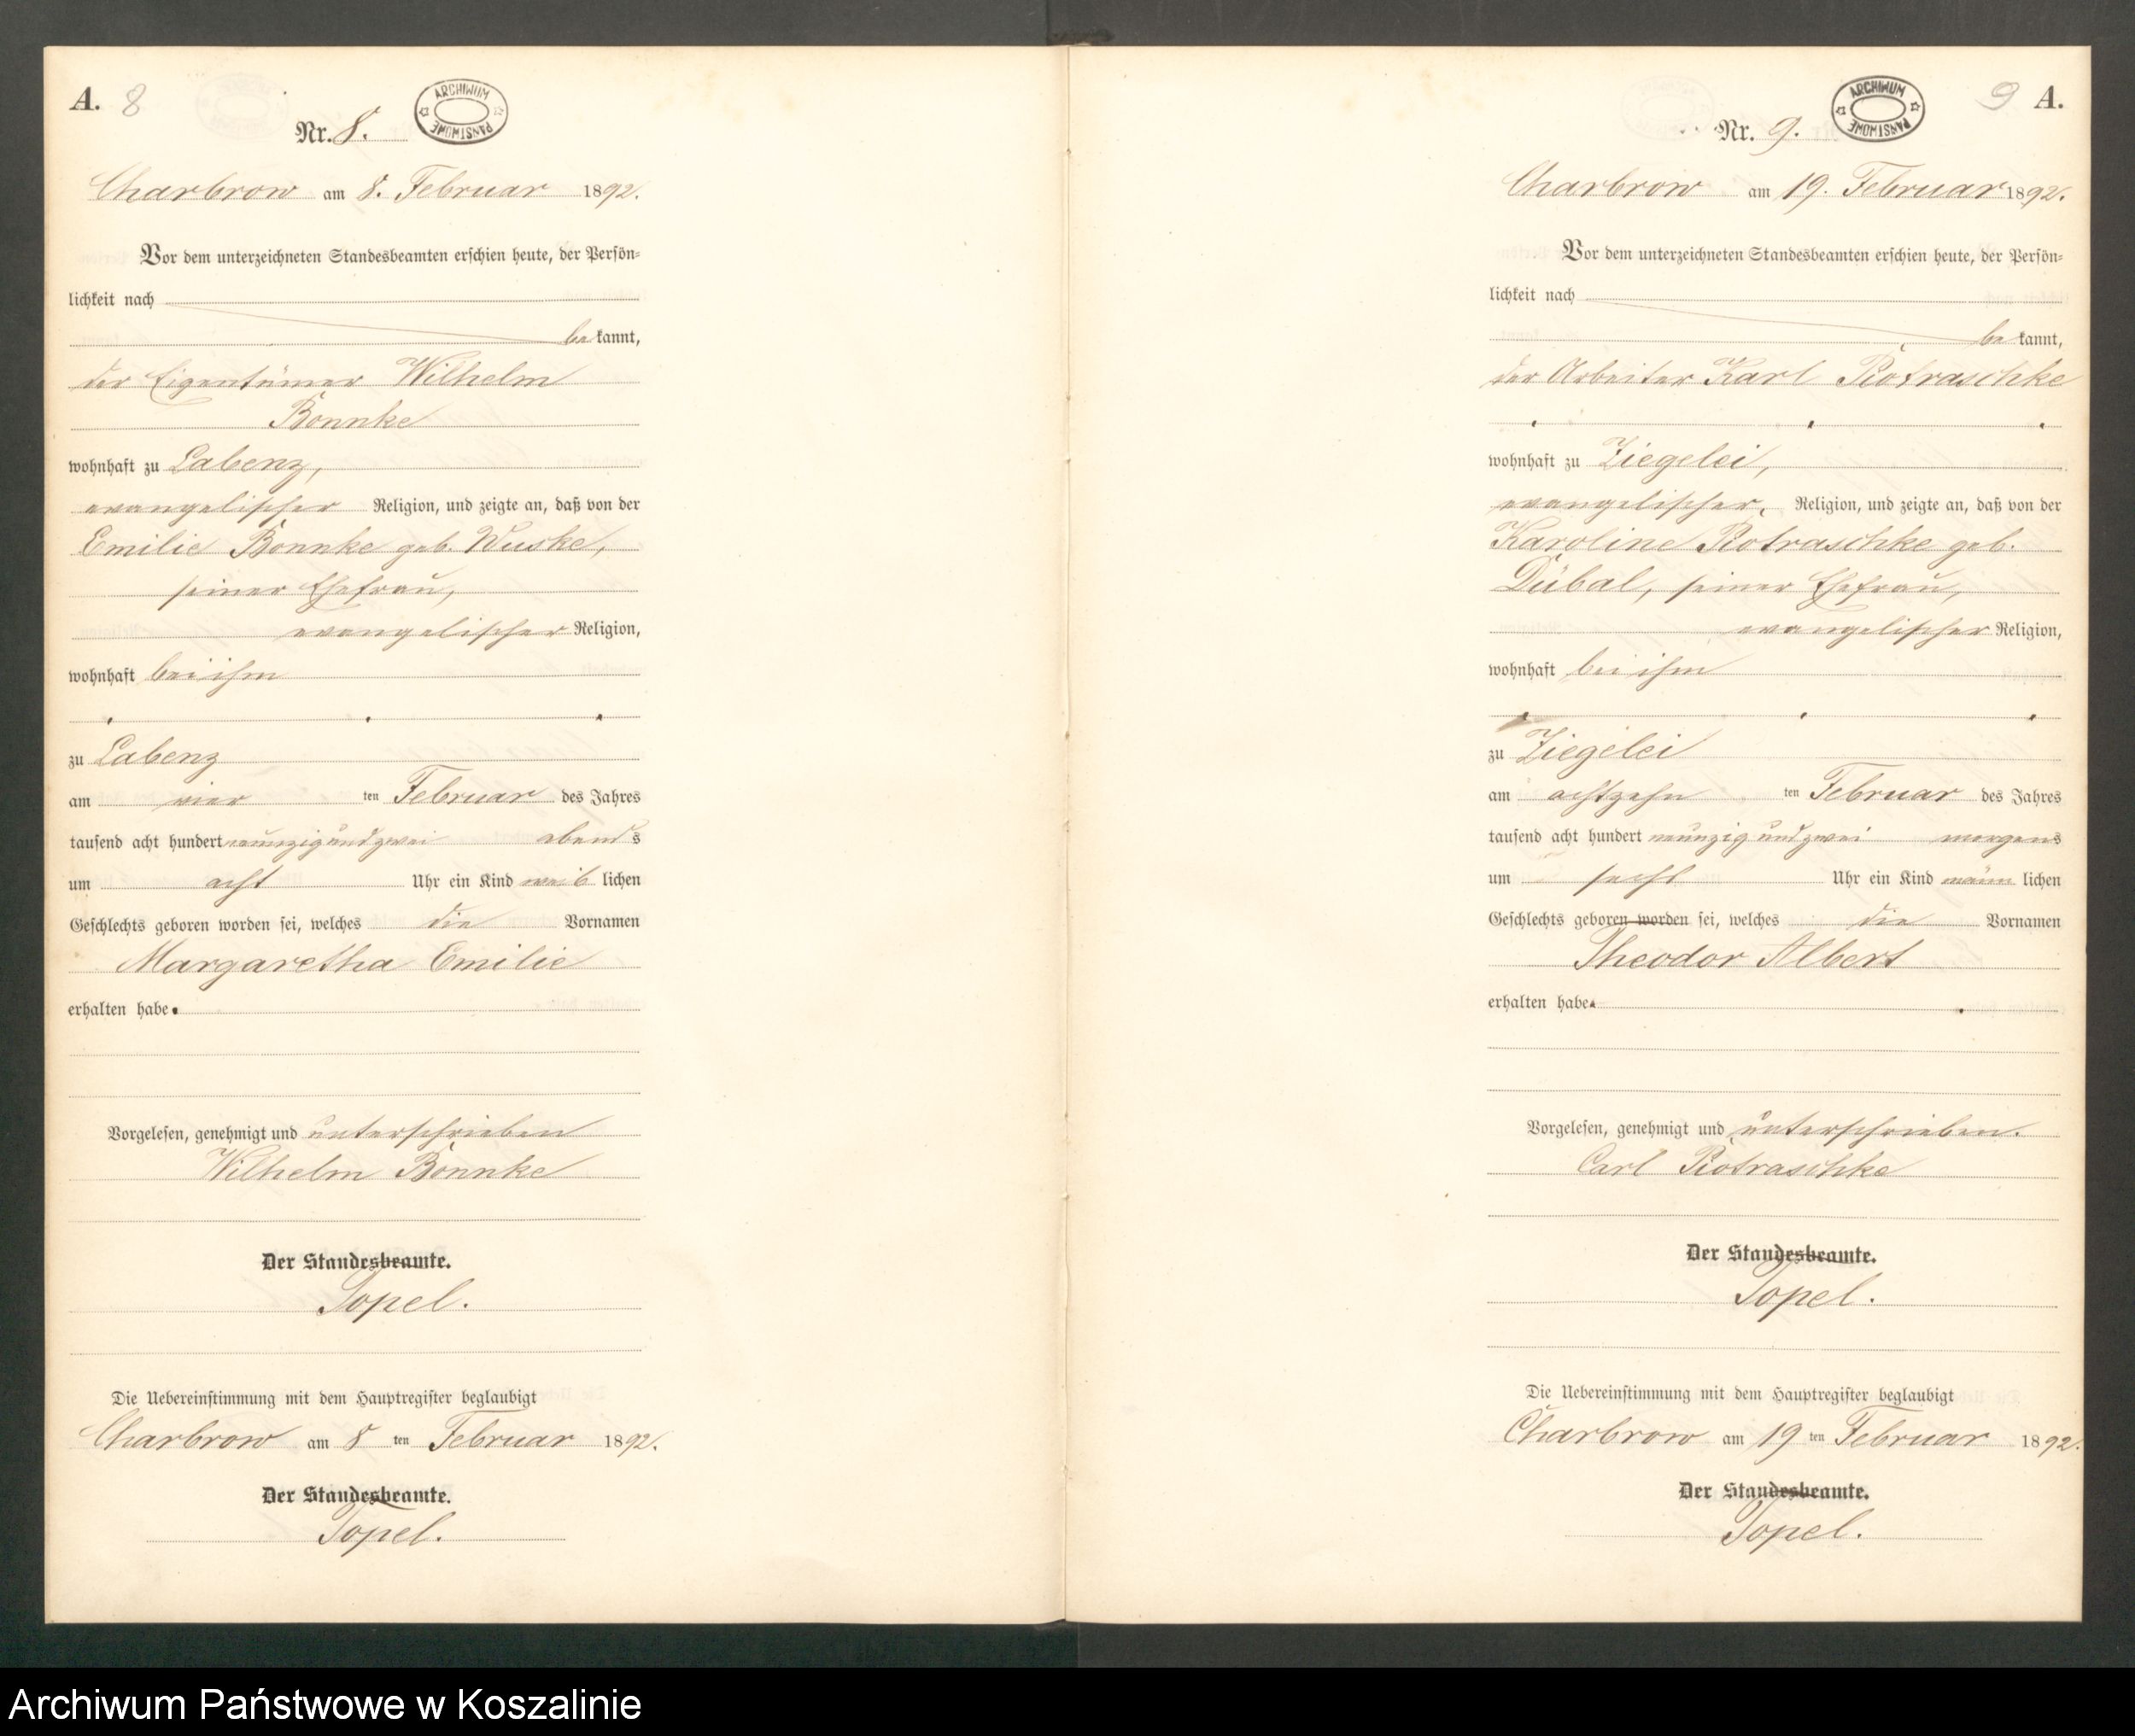 A. 8
ARCHIWUM PAŃSTWOWE
Nr. 8.
Charbrow am 8. Februar 1892.
Vor dem unterzeichneten Standesbeamten erschien heute, der Persön-
lichkeit nach
bekannt,
der Eigentümer Wilhelm
Bonnke
wohnhaft zu Labenz,
evangelischer Religion, und zeigte an, daß von der
Emilie Bonnke geb. Wuske,
seiner Ehefrau,
evangelischer Religion,
wohnhaft bei ihm
zu Labenz
am vier ten Februar des Jahres
tausend acht hundert neunzig und zwei abends
um acht Uhr ein Kind weiblichen
Geschlechts geboren worden sei, welches die Vornamen
Margaretha Emilie
erhalten habe.
Vorgelesen, genehmigt und unterschrieben
Wilhelm Bonnke
Der Standesbeamte.
Topel.
Die Uebereinstimmung mit dem Hauptregister beglaubigt
Charbrow am 8 ten Februar 1892.
Der Standesbeamte.
Topel.
9 A.
ARCHIWUM PAŃSTWOWE
Nr. 9.
Charbrow am 19. Februar 1892.
Vor dem unterzeichneten Standesbeamten erschien heute, der Persön-
lichkeit nach
bekannt,
der Arbeiter Karl Piotraschke
wohnhaft zu Ziegelei,
evangelischer, Religion, und zeigte an, daß von der
Karoline Piotraschke geb.
Dübal, seiner Ehefrau,
evangelischer Religion,
wohnhaft bei ihm
zu Ziegelei
am achtzehn ten Februar des Jahres
tausend acht hundert neunzig und zwei morgens
um sechs Uhr ein Kind männlichen
Geschlechts geboren worden sei, welches die Vornamen
Theodor Albert
erhalten habe.
Vorgelesen, genehmigt und unterschrieben.
Carl Piotraschke
Der Standesbeamte.
Topel.
Die Uebereinstimmung mit dem Hauptregister beglaubigt
Charbrow am 19 ten Februar 1892.
Der Standesbeamte.
Topel.
Archiwum Państwowe w Koszalinie